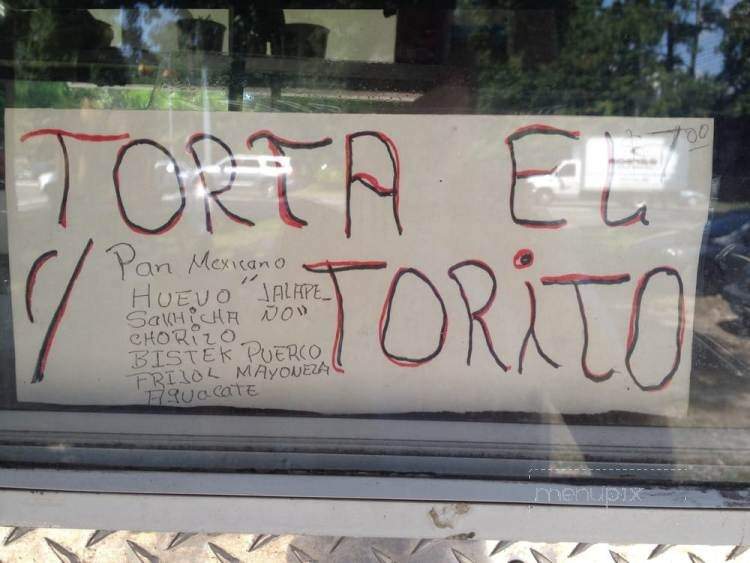 TORTA EL
TORITO
Pan Mexicano
HUEVO "JALAPE_
SAKHICHA ÑO"
CHORIZO
BISTEK PUERCO
FRIJOL MAYONEZA
AGUACATE
menupix